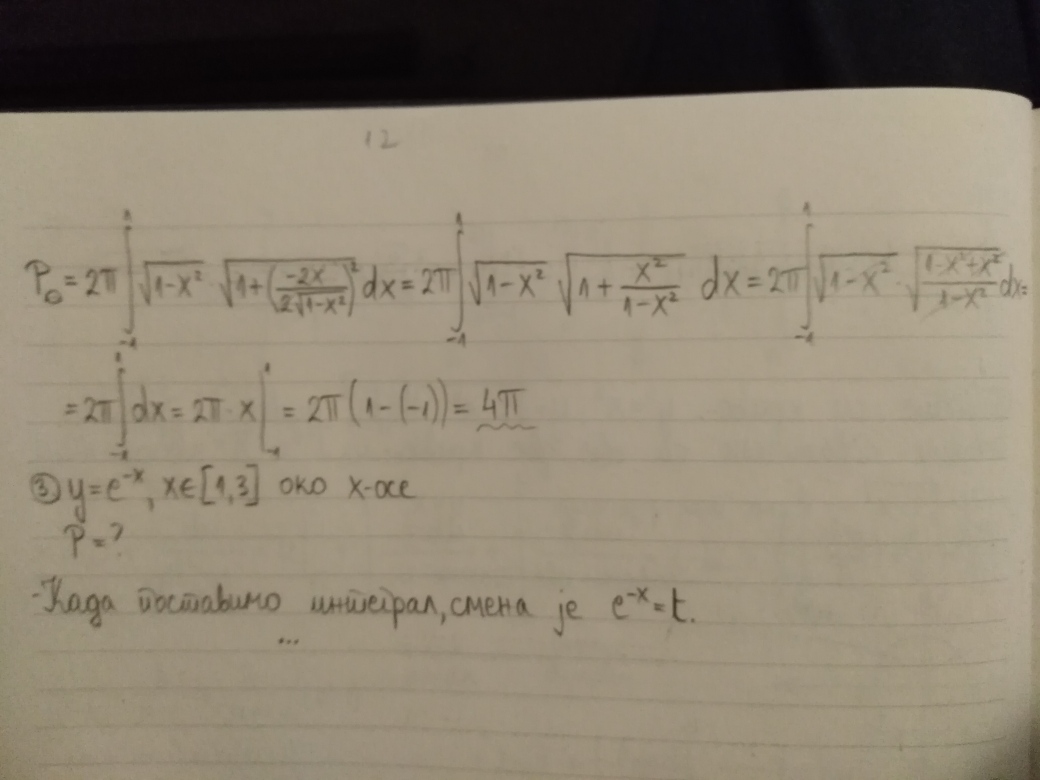 12
P₀ = 2π ∫₋₁¹ √(1-x²) · √(1+(-2x/(2√(1-x²)))²) dx = 2π ∫₋₁¹ √(1-x²) √(1+x²/(1-x²)) dx = 2π ∫₋₁¹ √(1-x²) · √((1-x²+x²)/(1-x²)) dx =
= 2π ∫₋₁¹ dx = 2π · x |₋₁¹ = 2π(1-(-1)) = 4π
③ y=e⁻ˣ, x∈[1,3] око x-осе
P=?
-Када поставимо интеграл, смена је e⁻ˣ=t.
...